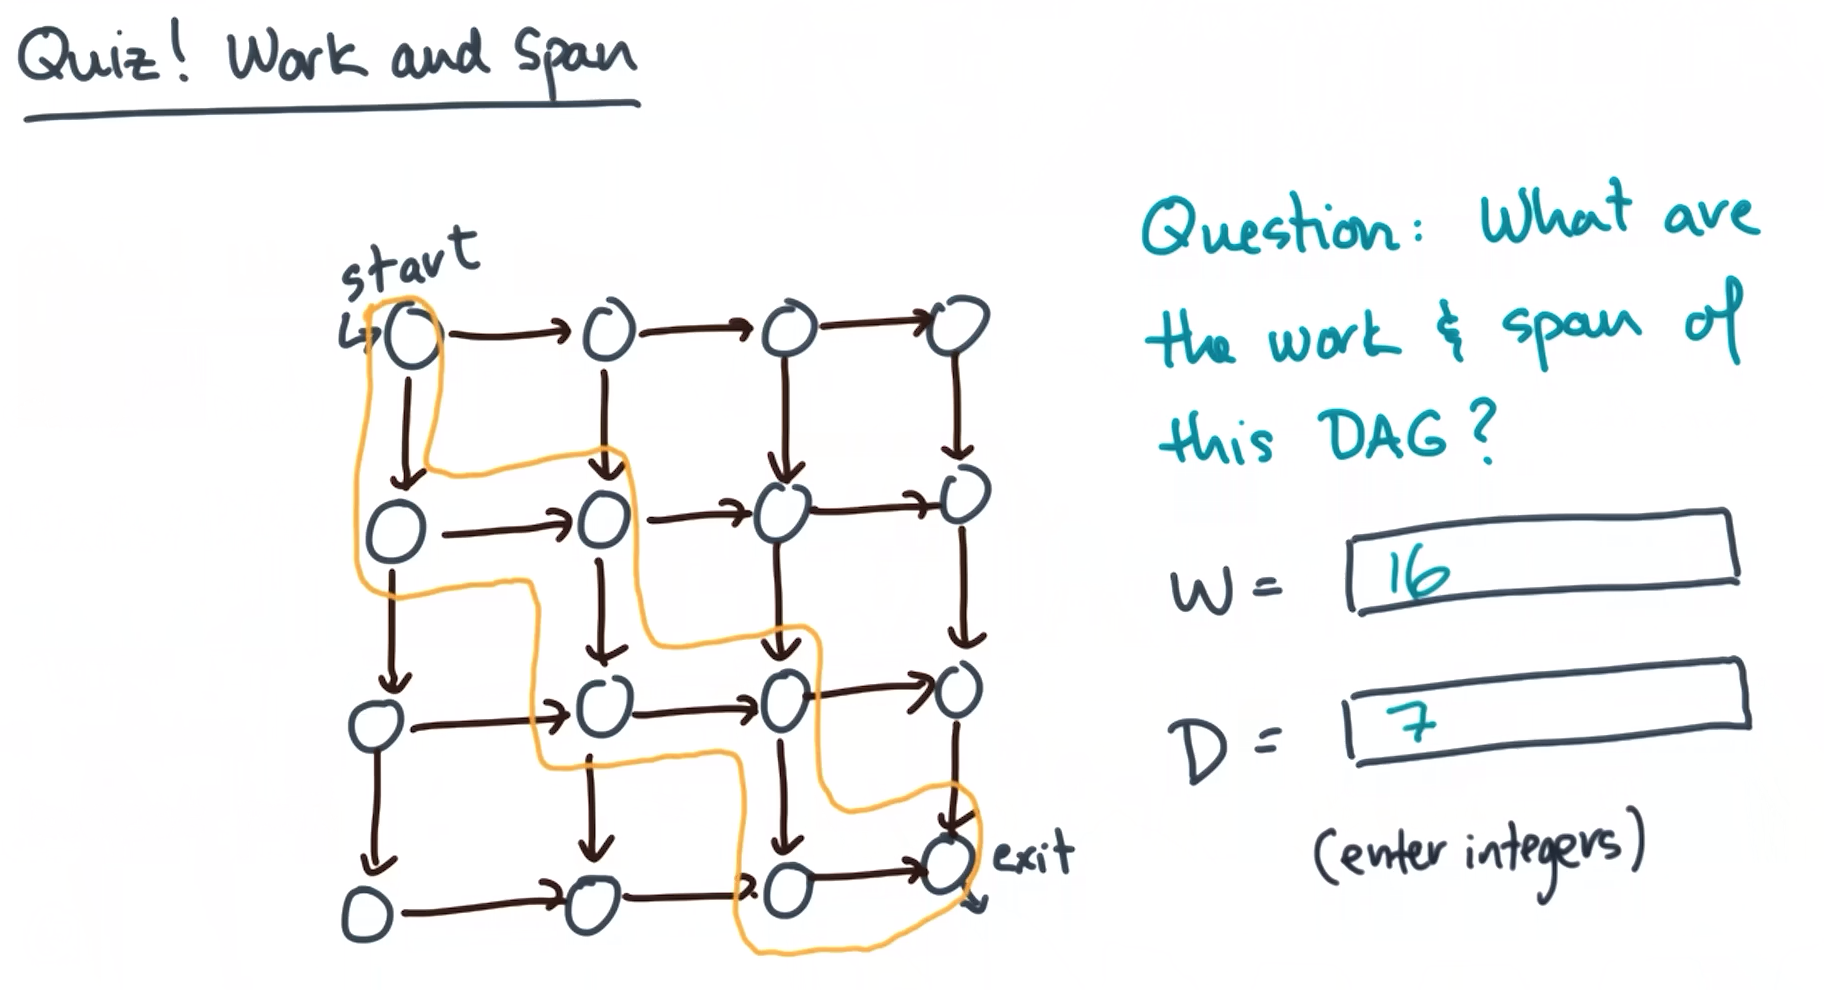 Quiz! Work and Span
start
Question: What are
the work & span of
this DAG?
W = 16
D = 7
exit
(enter integers)